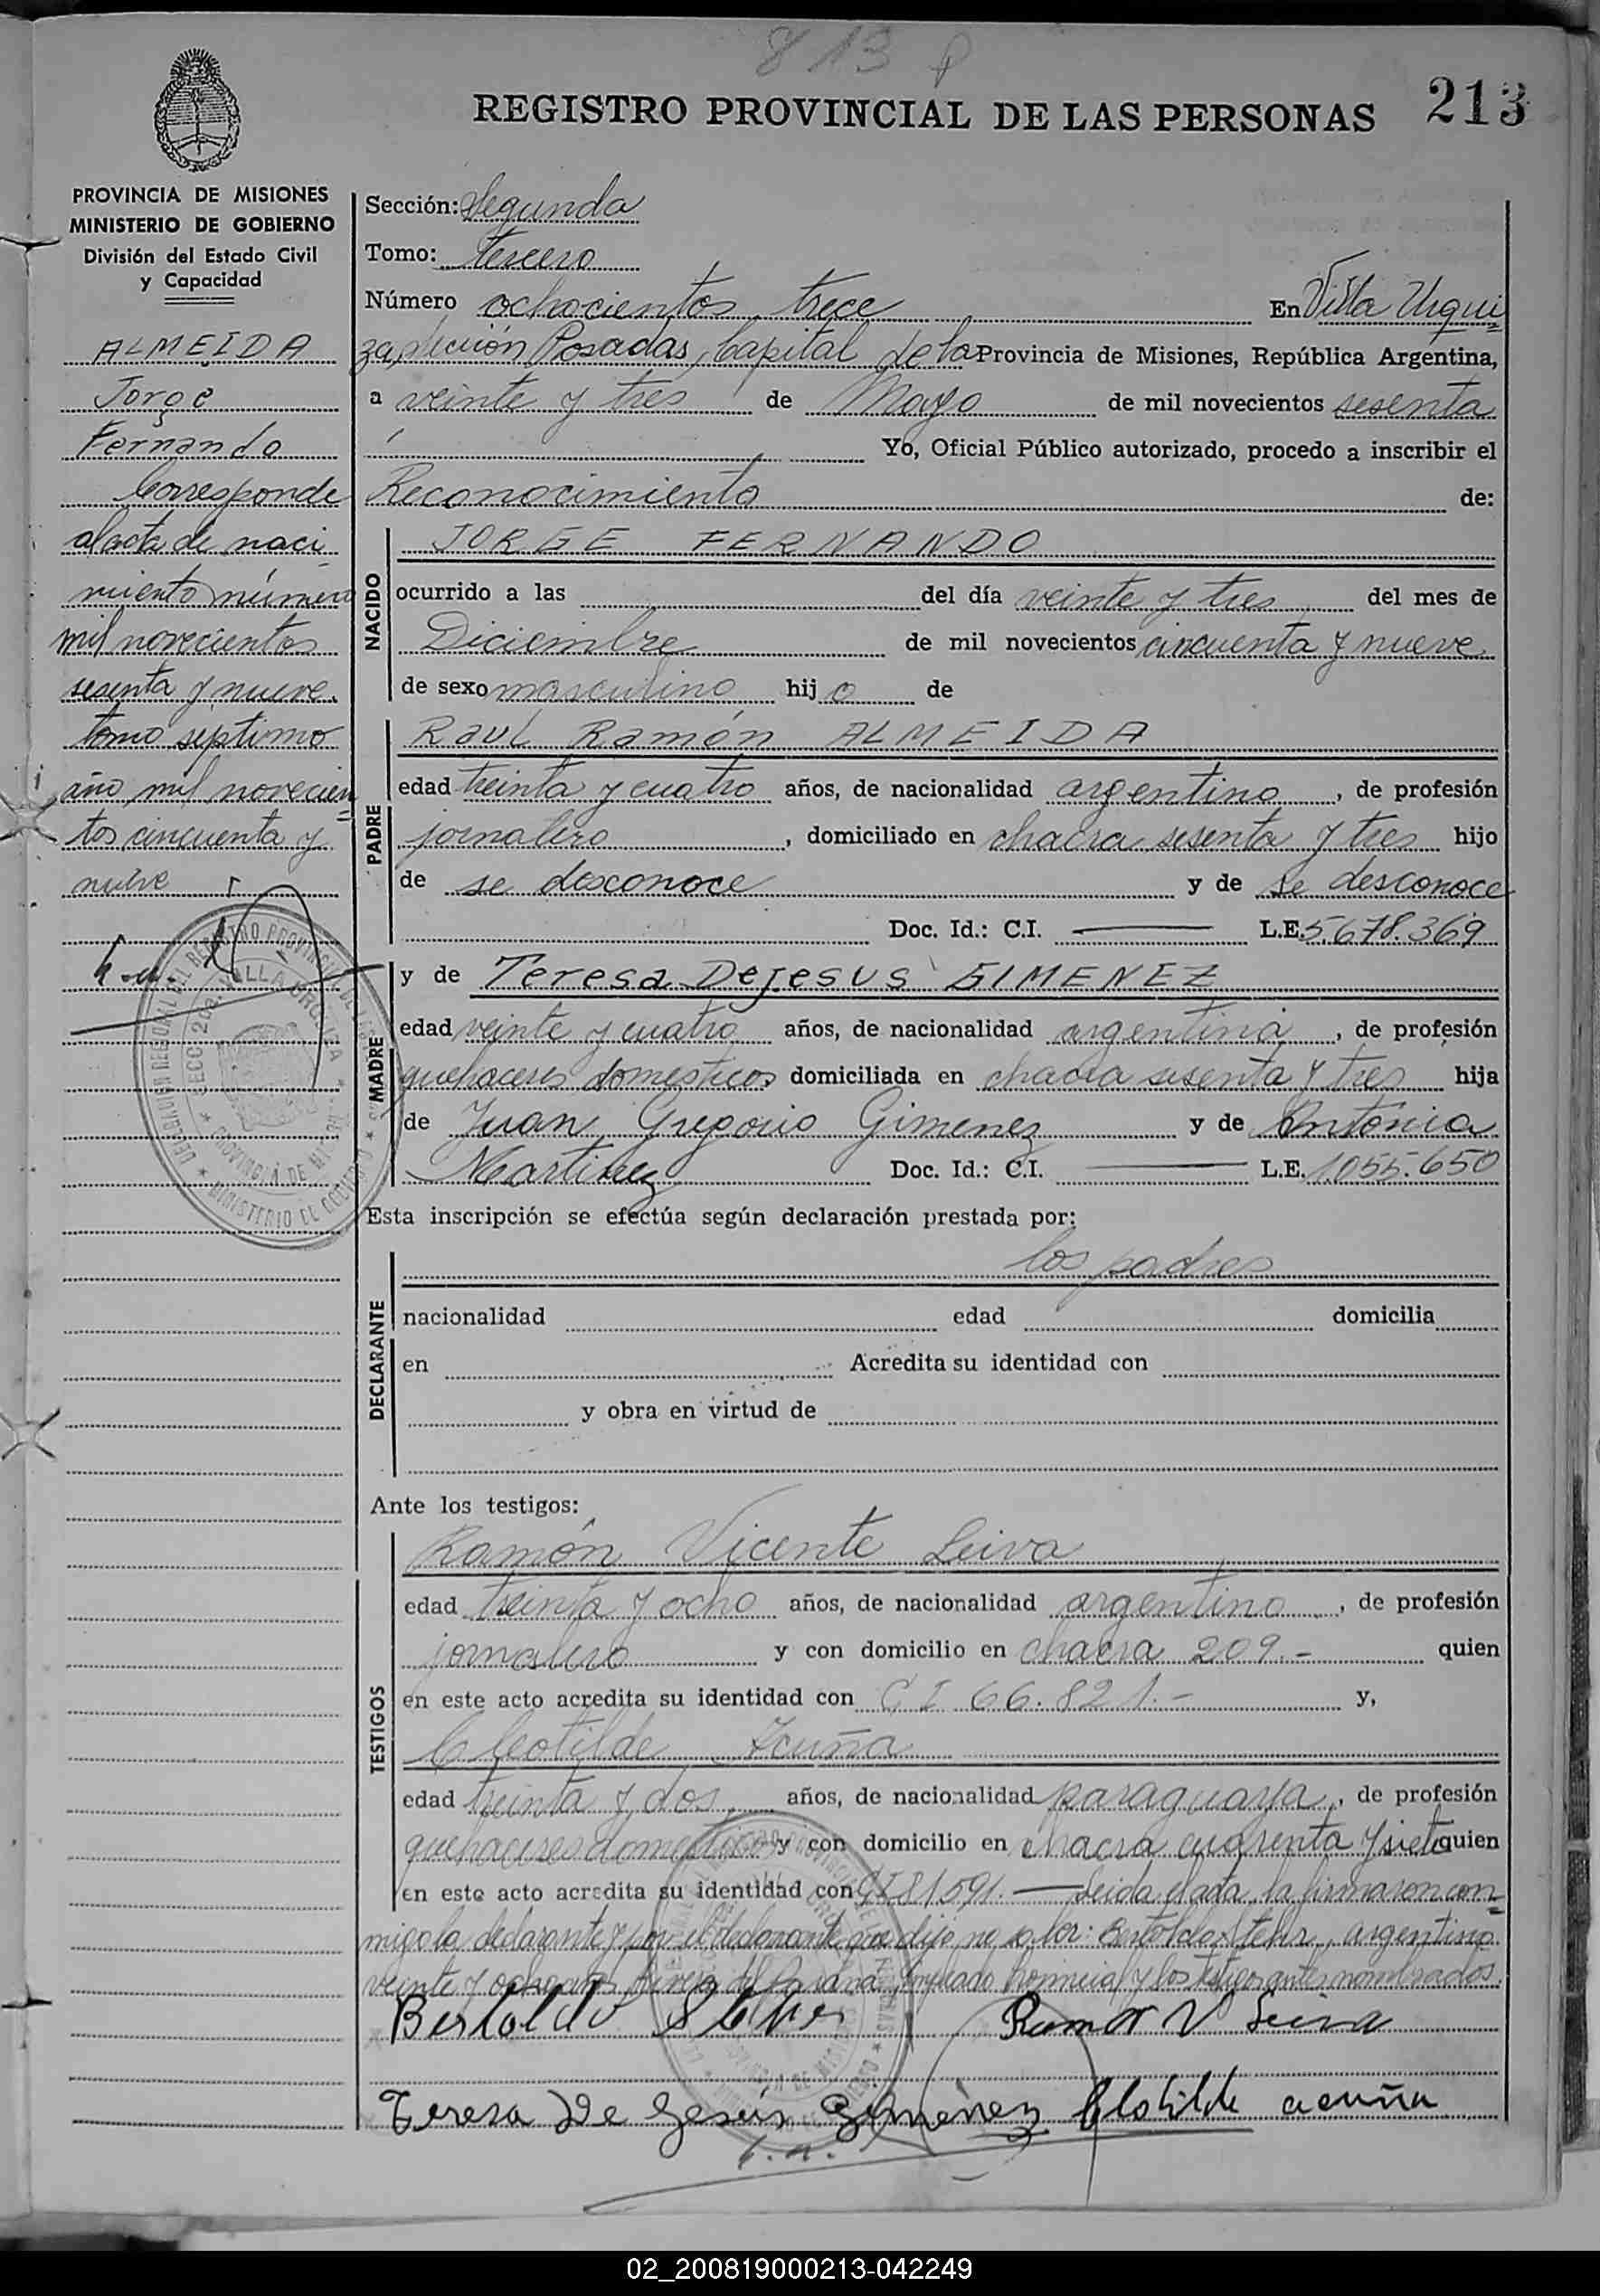 813
REGISTRO PROVINCIAL DE LAS PERSONAS 213
PROVINCIA DE MISIONES
MINISTERIO DE GOBIERNO
División del Estado Civil
y Capacidad
ALMEIDA
Jorge
Fernando
Corresponde
al acta de naci
miento número
mil novecientos
sesenta y nueve.
tomo septimo
año mil novecien
tos cincuenta y
nueve
Sección: Segunda
Tomo: tercero
Número ochocientos trece En Villa Urqui
za, sección Posadas, Capital de la Provincia de Misiones, República Argentina,
a veinte y tres de Mayo de mil novecientos sesenta
Yo, Oficial Público autorizado, procedo a inscribir el
Reconocimiento de:
NACIDO
JORGE FERNANDO
ocurrido a las del día veinte y tres del mes de
Diciembre de mil novecientos cincuenta y nueve
de sexo masculino hijo de
PADRE
Raúl Ramón ALMEIDA
edad treinta y cuatro años, de nacionalidad argentino, de profesión
jornalero, domiciliado en chacra sesenta y tres hijo
de se desconoce y de se desconoce
Doc. Id.: C.I. — L.E. 5.678.369
MADRE
y de Teresa Dejesus GIMENEZ
edad veinte y cuatro años, de nacionalidad argentina, de profesión
quehaceres domesticos domiciliada en chacra sesenta y tres hija
de Juan Gregorio Gimenez y de Antonia
Martinez Doc. Id.: C.I. — L.E. 1.055.650
Esta inscripción se efectúa según declaración prestada por:
DECLARANTE
los padres
nacionalidad edad domicilia
en Acredita su identidad con
y obra en virtud de
Ante los testigos:
TESTIGOS
Ramón Vicente Leiva
edad treinta y ocho años, de nacionalidad argentino, de profesión
jornalero y con domicilio en chacra 209.- quien
en este acto acredita su identidad con C I 66.821.- y,
Cleotilde Acuña
edad treinta y dos años, de nacionalidad paraguaya, de profesión
quehaceres domesticos y con domicilio en chacra cuarenta y siete quien
en este acto acredita su identidad con CI 81591. — Leida el acta, la firmaron con
migo la declarante y por el declarante que dijo no saber: Bertoldo Stehr, argentino
veinte y ocho años, empleado Provincial y los testigos antes nombrados.
Bertoldo Stehr Ramon V Leiva
Teresa De Jesús Gimenez Clotilde acuña
02_200819000213-042249